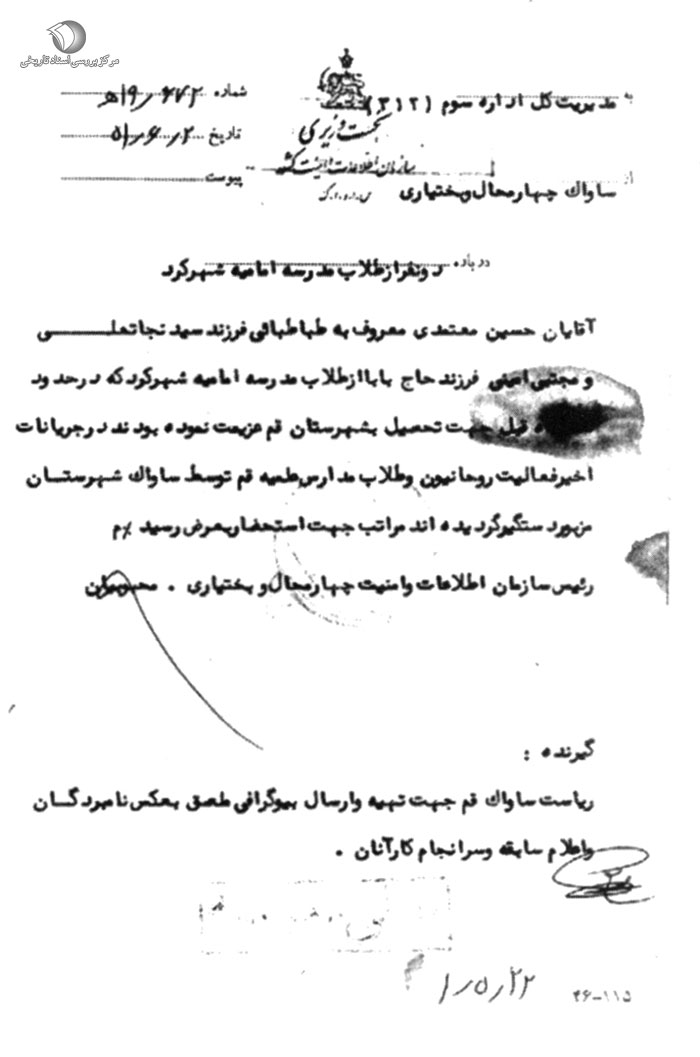 مرکز بررسی اسناد تاریخی
به مدیریت کل اداره سوم (۳۱۲)
شماره ۱۹٫۶۷۲ه
نخست وزیری
تاریخ ۵۱٫۶٫۲
سازمان اطلاعات و امنیت کشور
س.ا.و.ا.ک
پیوست
از ساواک چهارمحال و بختیاری
درباره دونفر از طلاب مدرسه امامیه شهرکرد
آقایان حسین معتمدی معروف به طباطبائی فرزند سید نجاتعلی
و مجتبی امینی فرزند حاج بابا از طلاب مدرسه امامیه شهرکرد که در حدود
قبل جهت تحصیل بشهرستان قم عزیمت نموده بودند در جریانات
اخیر فعالیت روحانیون و طلاب مدارس علمیه قم توسط ساواک شهرستان
مزبور دستگیر گردیده اند مراتب جهت استحضار بعرض رسید /م
رئیس سازمان اطلاعات و امنیت چهارمحال و بختیاری .
گیرنده :
ریاست ساواک قم جهت تهیه و ارسال بیوگرافی ملصق بعکس نامبردگان
و اعلام سابقه و سرانجام کار آنان .
۱٫۵٫۲۲
۴۶-۱۱۵